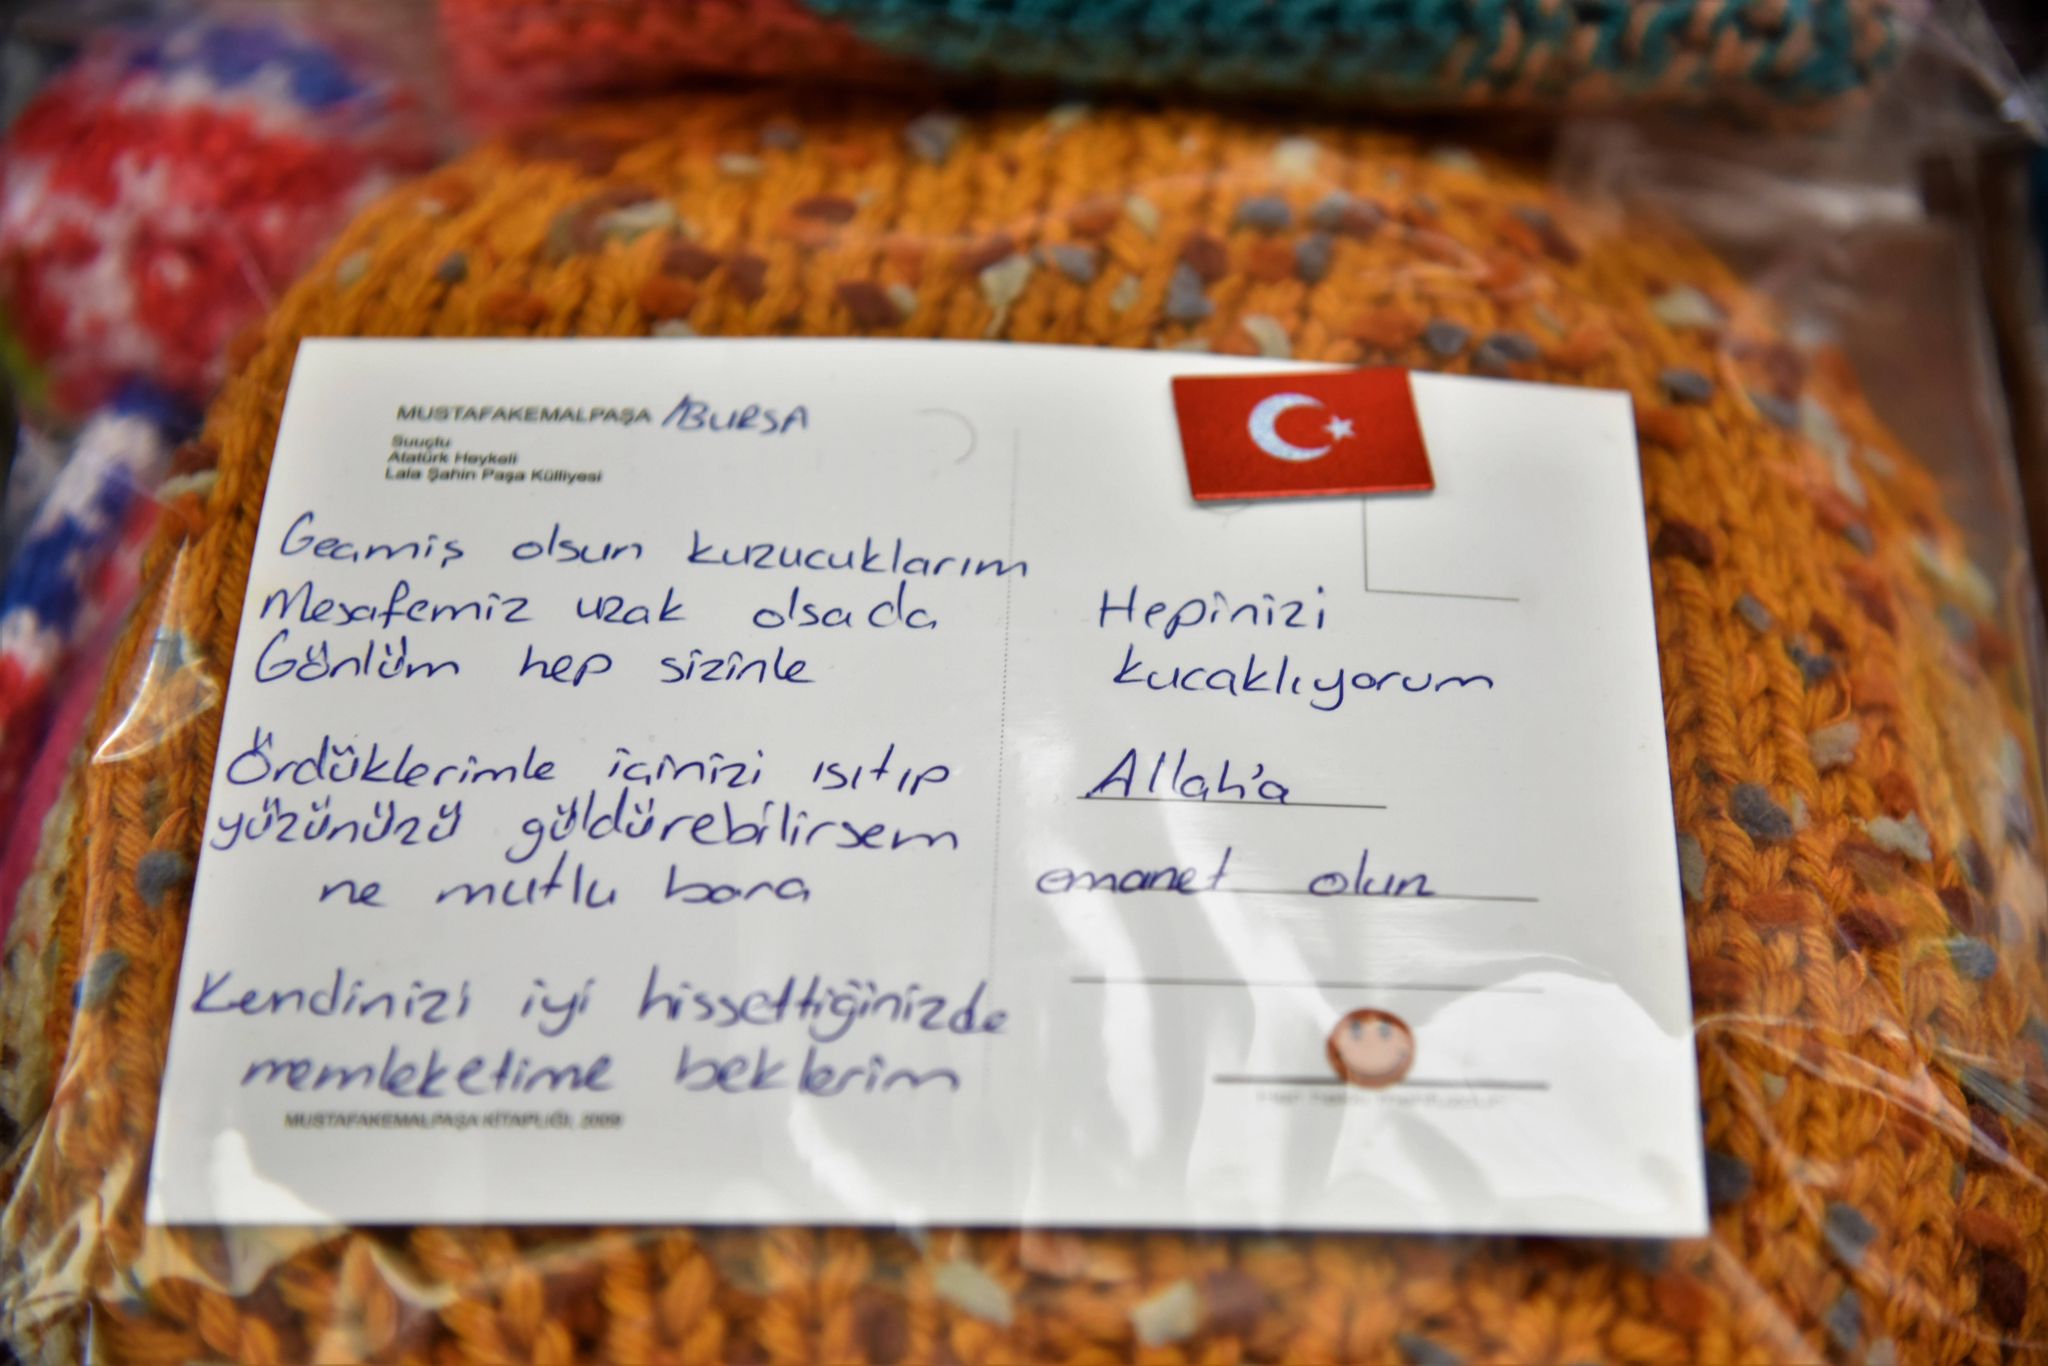 MUSTAFAKEMALPAŞA /BURSA
Suuçtu
Atatürk Heykeli
Lala Şahin Paşa Külliyesi
Gecmiş olsun kuzucuklarım
Mesafemiz uzak olsa da
Gönlüm hep sizinle
Ördüklerimle içinizi ısıtıp
yüzünüzü güldürebilirsem
ne mutlu bana
Kendinizi iyi hissettiğinizde
memleketime beklerim
MUSTAFAKEMALPAŞA KİTAPLIĞI, 2009
Hepinizi
kucaklıyorum
Allah'a
emanet olun